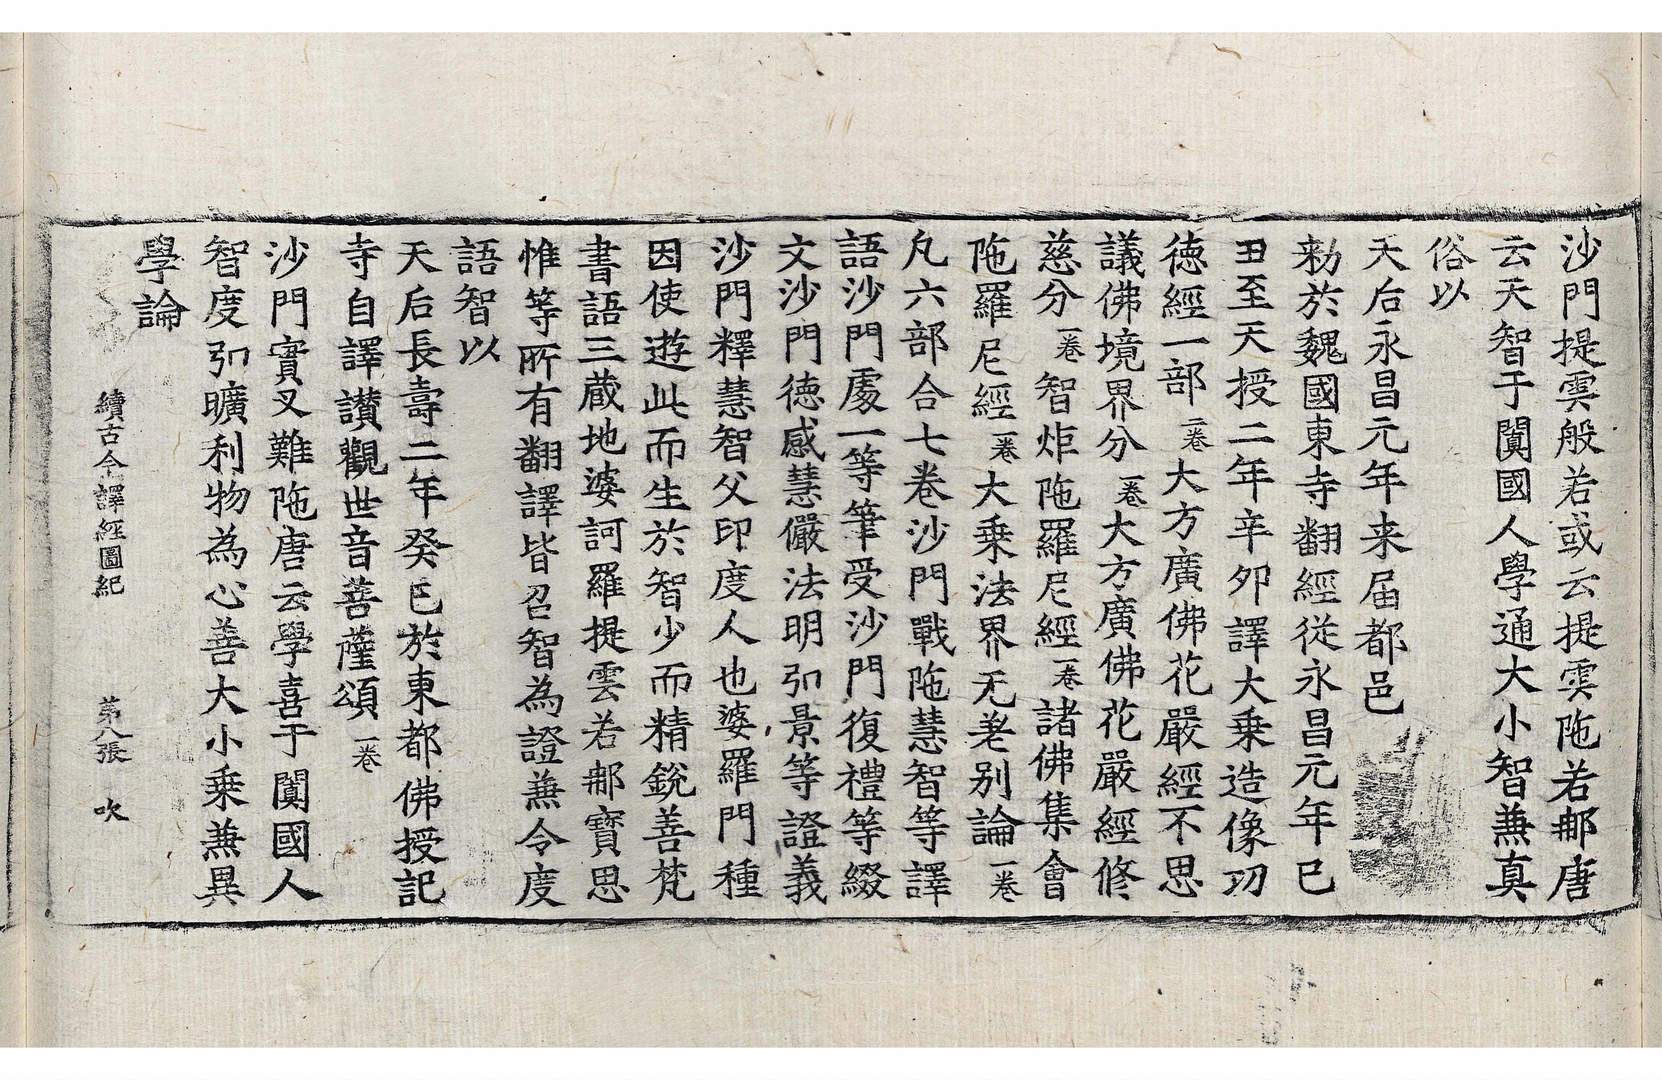 沙門提雲般若或云提雲陁若郍唐
云天智于闐國人學通大小智兼真
俗以
天后永昌元年来届都邑
勑於魏國東寺翻經從永昌元年巳
丑至天授二年辛夘譯大乗造像功
徳經一部二卷大方廣佛花嚴經不思
議佛境界分一卷大方廣佛花嚴經修
慈分一卷智炬陁羅尼經一卷諸佛集會
陁羅尼經一卷大乗法界无差别論一卷
凡六部合七卷沙門戰陁慧智等譯
語沙門處一等筆受沙門復禮等綴
文沙門德感慧儼法明弘景等證義
沙門釋慧智父印度人也婆羅門種
因使遊此而生於智少而精銳善梵
書語三藏地婆訶羅提雲若郍寶思
惟等所有翻譯皆召智為證兼令度
語智以
天后長壽二年癸巳於東都佛授記
寺自譯讃觀世音菩薩頌一卷
沙門實叉難陁唐云學喜于闐國人
智度弘曠利物為心善大小乗兼異
學論
續古今譯經圖紀 第八張 吹